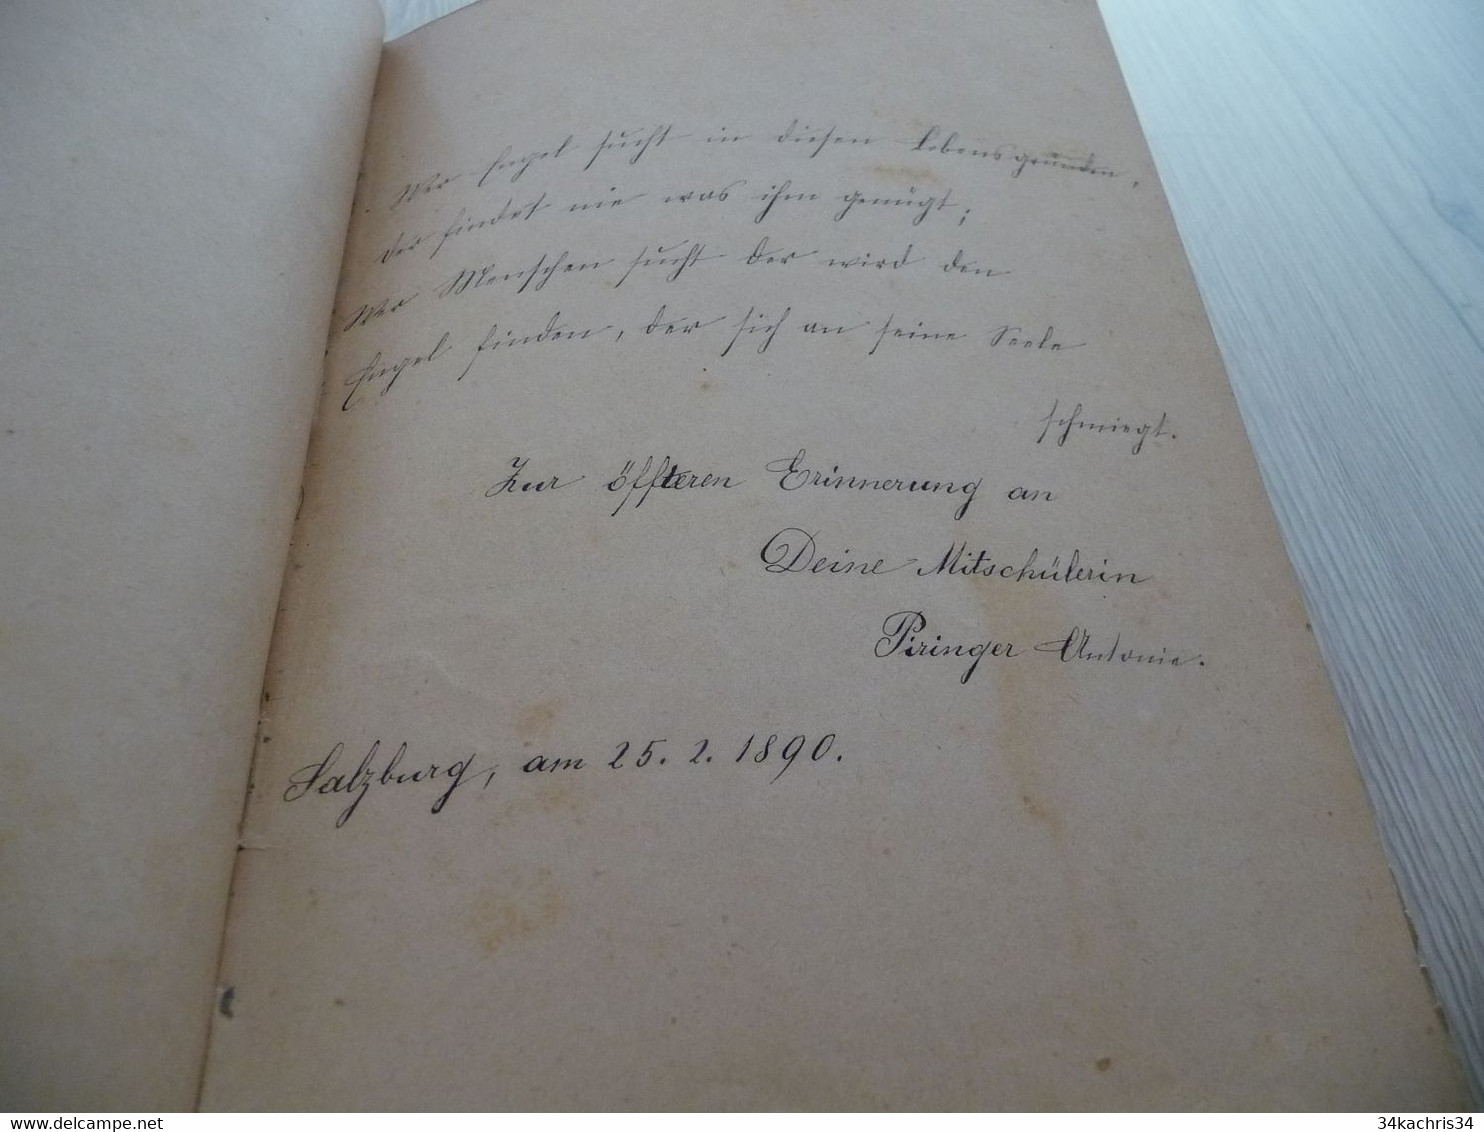 Wer Engel sucht in diesen Lebensgründen,
der findet nie was ihm genügt;
Wer Menschen sucht der wird den
Engel finden, der sich an seine Seele
schmiegt.
Zur öffteren Erinnerung an
Deine Mitschülerin
Piringer Antonie.
Salzburg, am 25. 2. 1890.
www.delcampe.net
34kachris34